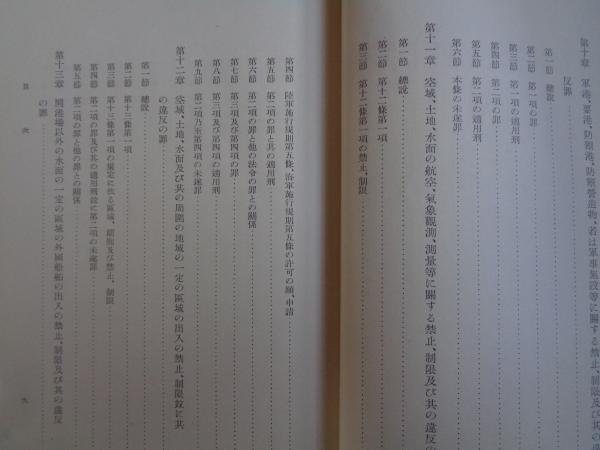 第十章 軍港、要港、防禦港、防禦營造物、若は軍事施設等に關する禁止、制限及び其の違
反罪
第一節 總說
第二節 第一項の罪
第三節 第一項の適用刑
第四節 第二項の罪
第五節 第二項の適用刑
第六節 本條の未遂罪
第十一章 空域、土地、水面の航空、氣象觀測、測量等に關する禁止、制限及び其の違反の
第一節 總說
第二節 第十二條第一項
第三節 第十二條第一項の禁止、制限
第四節 陸軍施行規則第五條、海軍施行規則第五條の許可の願、申請
第五節 第二項の罪と其の適用刑
第六節 第二項の罪と他の法令の罪との關係
第七節 第三項及び第四項の罪
第八節 第三項及び第四項の適用刑
第九節 第二項乃至第四項の未遂罪
第十二章 空域、土地、水面及び其の周圍の地域の一定の區域の出入の禁止、制限竝に其
の違反の罪
第一節 總說
第二節 第十三條第一項
第三節 第十三條第一項の規定に依る區域、期間及び禁止、制限
第四節 第二項の罪及び其の適用刑竝に第二項の未遂罪
第五節 第二項の罪と他の罪との關係
第十三章 開港場以外の水面の一定の區域の外國船舶の出入の禁止、制限及び其の違反
の罪
目次
九